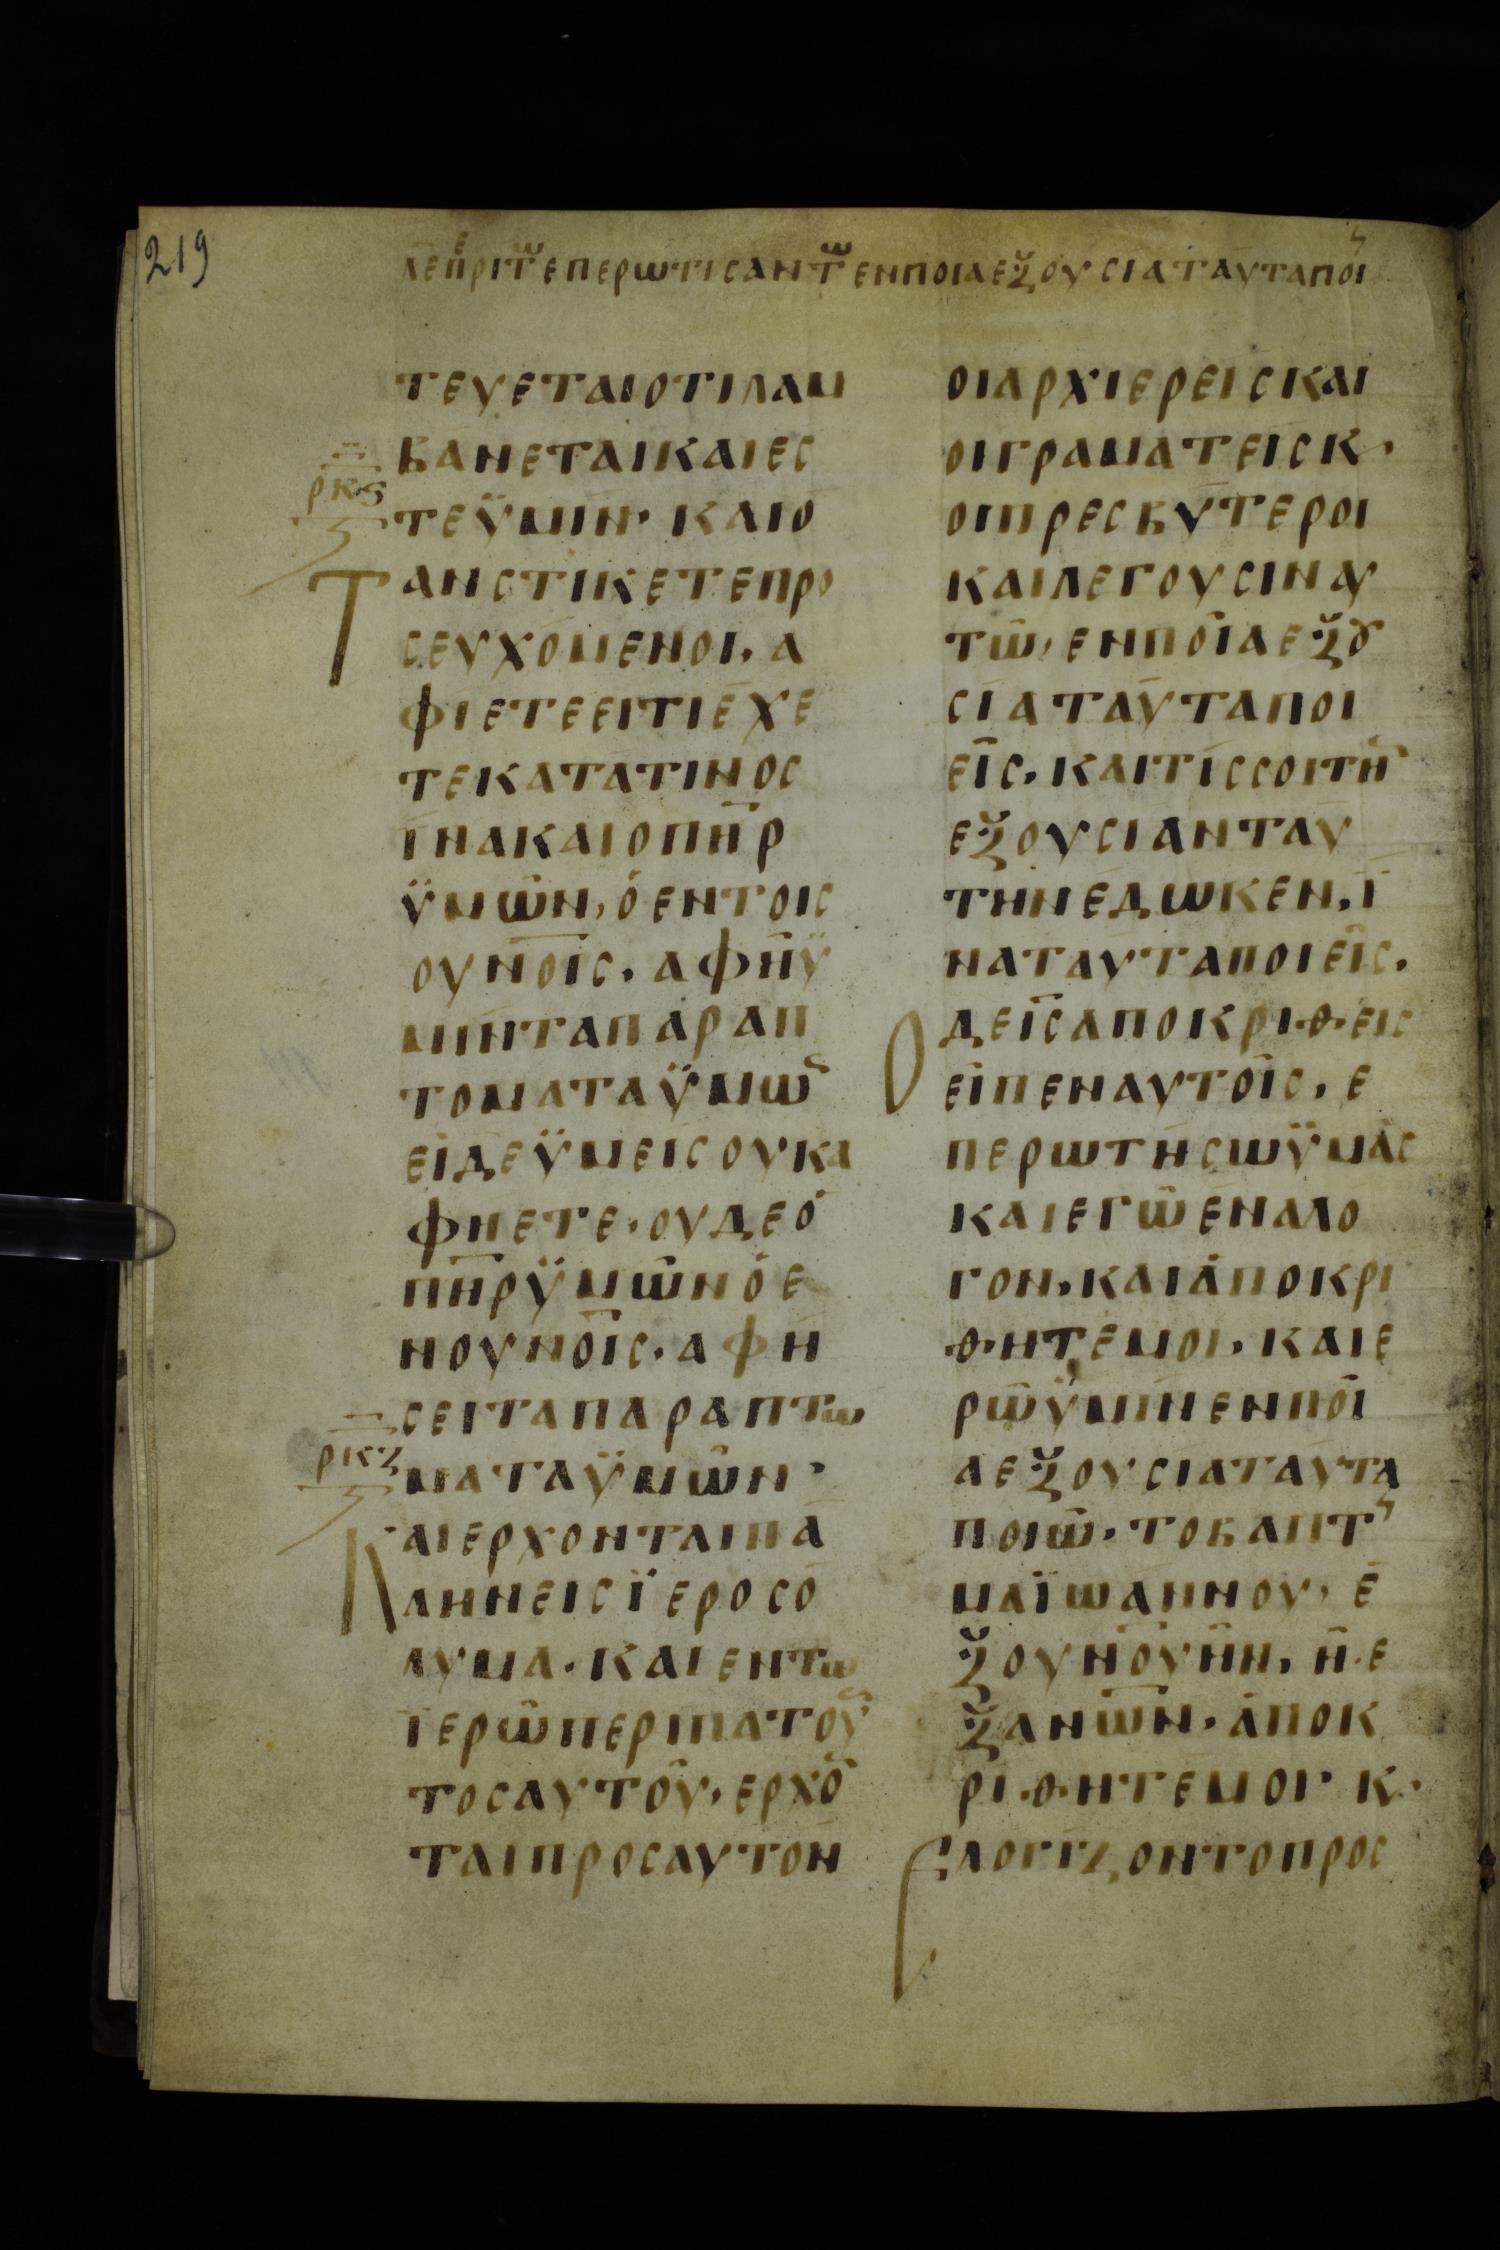 219
ΛΕ ΠΕΡΙ ΤΩ ΕΠΕΡΩΤΙΣΑΝΤΩ ΕΝ ΠΟΙΑ ΕΞΟΥΣΙΑ ΤΑΥΤΑ ΠΟΙ
ΤΕΥΕΤΑΙΟΤΙΛΑΜ
ΒΑΝΕΤΑΙΚΑΙΕϹ
ρκϛ
ΤΕΫΜΙΝ· ΚΑΙΟ
ΤΑΝϹΤΙΚΕΤΕΠΡΟ
ϹΕΥΧΌΜΕΝΟΙ, Α
ΦΙΕΤΕΕΙΤΙΕΧΕ
ΤΕΚΑΤΑΤΙΝΟϹ
ΪΝΑΚΑΙΟΠΗ̅Ρ
ΫΜΩ͂Ν, ὉΕΝΤΟΙϹ
ΟΥΝΟΙ̅Ϲ, ΑΦΗΫ
ΜΙΝΤΑΠΑΡΑΠ
ΤΟΜΑΤΑΫΜΩ
ΕΙΔΕΫΜΕΙϹΟΥΚΑ
ΦΗΕΤΕ, ΟΥΔΕὉ
ΠΗ̅ΡΫΜΩ͂ΝὉΕ
ΝΟΥΝΟΙ̅Ϲ, ΑΦΗ
ϹΕΙΤΑΠΑΡΑΠΤΩ
ρκζ
ΜΑΤΑΫΜΩ͂Ν·
ΚΑΙΕΡΧΟΝΤΑΙΠΑ
ΛΗΝΕΙϹΪΕΡΟϹΟ
ΛΥΜΑ· ΚΑΙΕΝΤΩ
ΪΕΡΩ͂ΠΕΡΙΠΑΤΟΥ
ΤΟϹΑΥΤΟΥ͂, ΕΡΧΟ
ΤΑΙΠΡΟϹΑΥΤΟΝ
ΟΙΑΡΧΙΕΡΕΙϹΚΑΙ
ΟΙΓΡΑΜΑΤΕΙϹΚ,
ΟΙΠΡΕϹΒΥΤΕΡΟΙ
ΚΑΙΛΕΓΟΥϹΙΝΑΥ
ΤΩ͂, ΕΝΠΟΙΑΕΞȢ
ϹΙΑΤΑΥΤΑΠΟΙ
ΕΙ͂Ϲ, ΚΑΙΤΙϹϹΟΙΤΗ
ΕΞΟΥϹΙΑΝΤΑΥ
ΤΗΝΕΔΩΚΕΝ, Ϊ
ΝΑΤΑΥΤΑΠΟΙΕΙϹ.
ΟΔΕΙ̅ϹΑΠΟΚΡΙΘΕΙϹ
ΕΙΠΕΝΑΥΤΟΙϹ, Ε
ΠΕΡΩΤΗϹΩΫΜΑϹ
ΚΑΙΕΓΩ͂ΕΝΑΛΟ
ΓΟΝ, ΚΑΙΑΠΟΚΡΙ
ΘΗΤΕΜΟΙ, ΚΑΙΕ
ΡΩ͂ΫΜΙΝΕΝΠΟΙ
ΑΕΞΟΥϹΙΑΤΑΥΤΑ
ΠΟΙΩ͂· ΤΟΒΑΠΤ
ΜΑΪΩΑΝΝΟΥ, Ε
ΞΟΥΝΟ̅ΥΗΝ, Η Ε
ΞΑΝΩ̅Ν, ΑΠΟΚ
ΡΙΘΗΤΕΜΟΙ· Κ,
ΕΛΟΓΙΖΟΝΤΟΠΡΟϹ